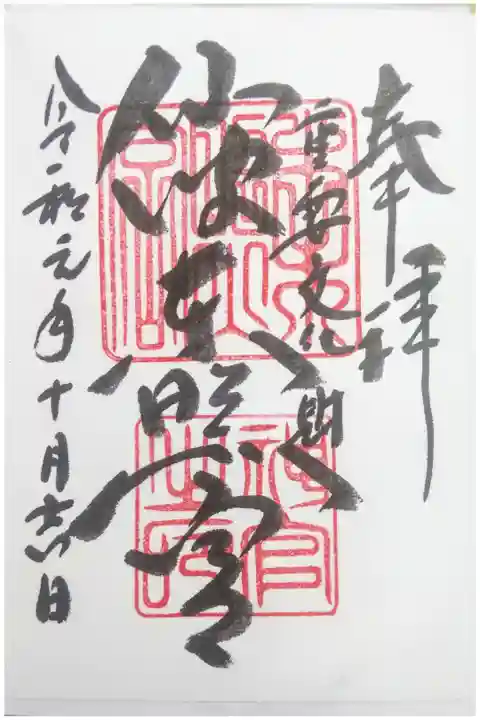 奉拝
重要文化財
仙波東照宮
令和元年十月十六日